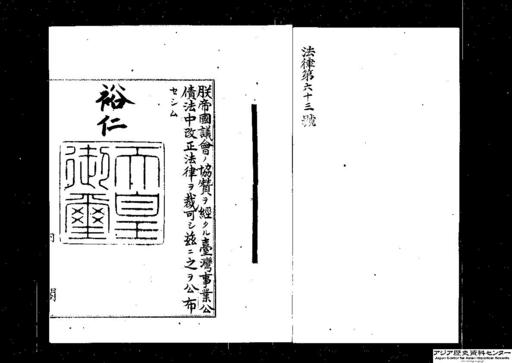 法律第六十三號
朕帝國議會ノ協贊ヲ經タル臺灣事業公
債法中改正法律ヲ裁可シ茲ニ之ヲ公布
セシム
裕仁
天皇
御璽
内閣
アジア歴史資料センター
Japan Center for Asian Historical Records